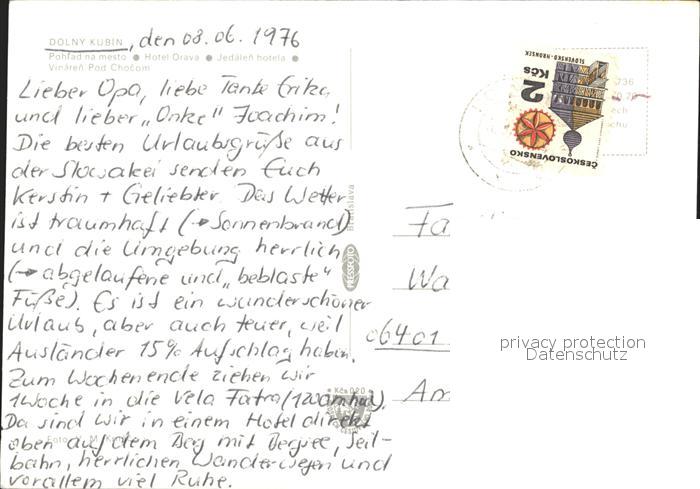 DOLNÝ KUBÍN, den 08.06. 1976
Pohľad na mesto ● Hotel Orava ● Jedáleň hotela ●
Vináreň Pod Chočom
Lieber Opa, liebe Tante Erika
und lieber „Onke" Joachim!
Die besten Urlaubsgrüße aus
der Slowakei senden Euch
Kerstin + Geliebter. Das Wetter
ist traumhaft (→ Sonnenbrand)
und die Umgebung herrlich
(→ abgelaufene und „beblaste"
Füße). Es ist ein wunderschöner
Urlaub, aber auch teuer, weil
Ausländer 15% Aufschlag haben.
Zum Wochenende ziehen wir
1 Woche in die Vela Fatra
Da sind wir in einem Hotel direkt
oben auf dem Berg mit Bergsee, Seil-
bahn, herrlichen Wanderwegen und
vorallem viel Ruhe.
Bratislava
PRESSFOTO
Kčs 0,20
Foto: M.
SLOVENSKO-HRONSEK
2 Kčs
ČESKOSLOVENSKO
736
Fa
Wa
06401
Am
privacy protection
Datenschutz